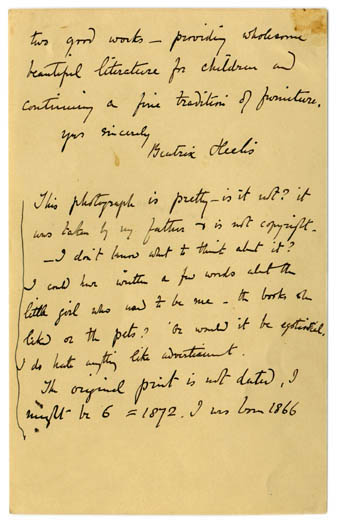 two good works — providing wholesome
beautiful literature for children and
continuing a fine tradition of furniture.
yrs sincerely
Beatrix Heelis
This photograph is pretty – is it not? it
was taken by my father & is not copyright.
— I don't know what to think about it?
I could have written a few words about the
little girl who used to be me – the books she
liked or the pets? Or would it be egotistical.
I do hate anything like advertisement.
The original print is not dated, I
might be 6 = 1872. I was born 1866